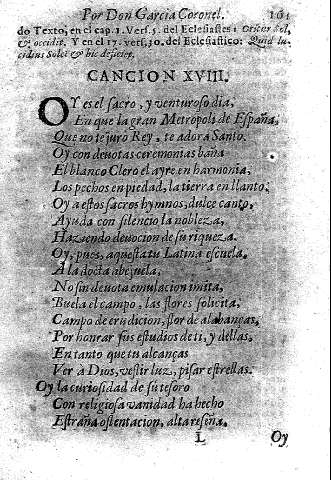 Por Don Garcia Coronel. 161
do Texto, en el cap. 1. Vers. 5. del Eclesiastes: Oritur sol,
& occidit. Y en el 17. vers. 30. del Eclesiastico: Quid lu-
cidius Sole? & hic deficiet.
CANCION XVIII.
OY es el sacro, y venturoso dia,
En que la gran Metropoli de España,
Que no te juro Rey, te adora Santo.
Oy con devotas ceremonias baña
El blanco Clero el ayre en harmonia,
Los pechos en piedad, la tierra en llanto.
Oy a estos sacros hymnos, dulce canto,
Ayuda con silencio la nobleza,
Haziendo devocion de su riqueza.
Oy, pues, aquesta tu Latina escuela,
A la docta abejuela,
No sin devota emulacion imita,
Buela el campo, las flores solicita,
Campo de erudicion, flor de alabanças,
Por honrar sus estudios de ti, y dellas,
En tanto que tu alcanças
Ver a Dios, vestir luz, pisar estrellas.
Oy la curiosidad de su tesoro
Con religiosa vanidad ha hecho
Estraña ostentacion, alta reseña.
L Oy